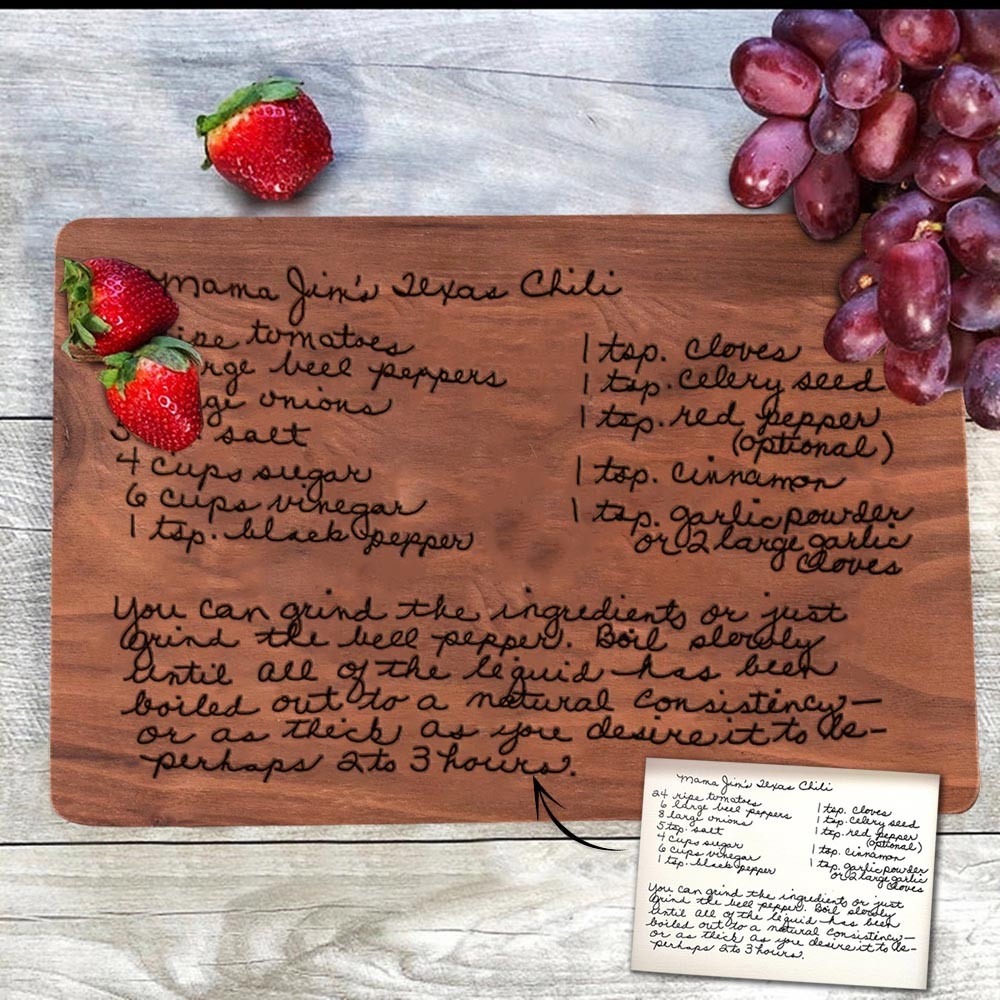 Mama Jim's Texas Chili
ripe tomatoes
large bell peppers
onions
5 salt
4 cups sugar
6 cups vinegar
1 tsp. black pepper
1 tsp. cloves
1 tsp. celery seed
1 tsp. red pepper
(optional)
1 tsp. cinnamon
1 tsp. garlic powder
or 2 large garlic
cloves
You can grind the ingredients or just
grind the bell pepper. Boil slowly
until all of the liquid has been
boiled out to a natural consistency—
or as thick as you desire it to be—
perhaps 2 to 3 hours.
Mama Jim's Texas Chili
24 ripe tomatoes
6 large bell peppers
8 large onions
5 tsp. salt
4 cups sugar
6 cups vinegar
1 tsp. black pepper
1 tsp. cloves
1 tsp. celery seed
1 tsp. red pepper
(optional)
1 tsp. cinnamon
1 tsp. garlic powder
or 2 large garlic
cloves
You can grind the ingredients or just
grind the bell pepper. Boil slowly
until all of the liquid has been
boiled out to a natural consistency—
or as thick as you desire it to be—
perhaps 2 to 3 hours.